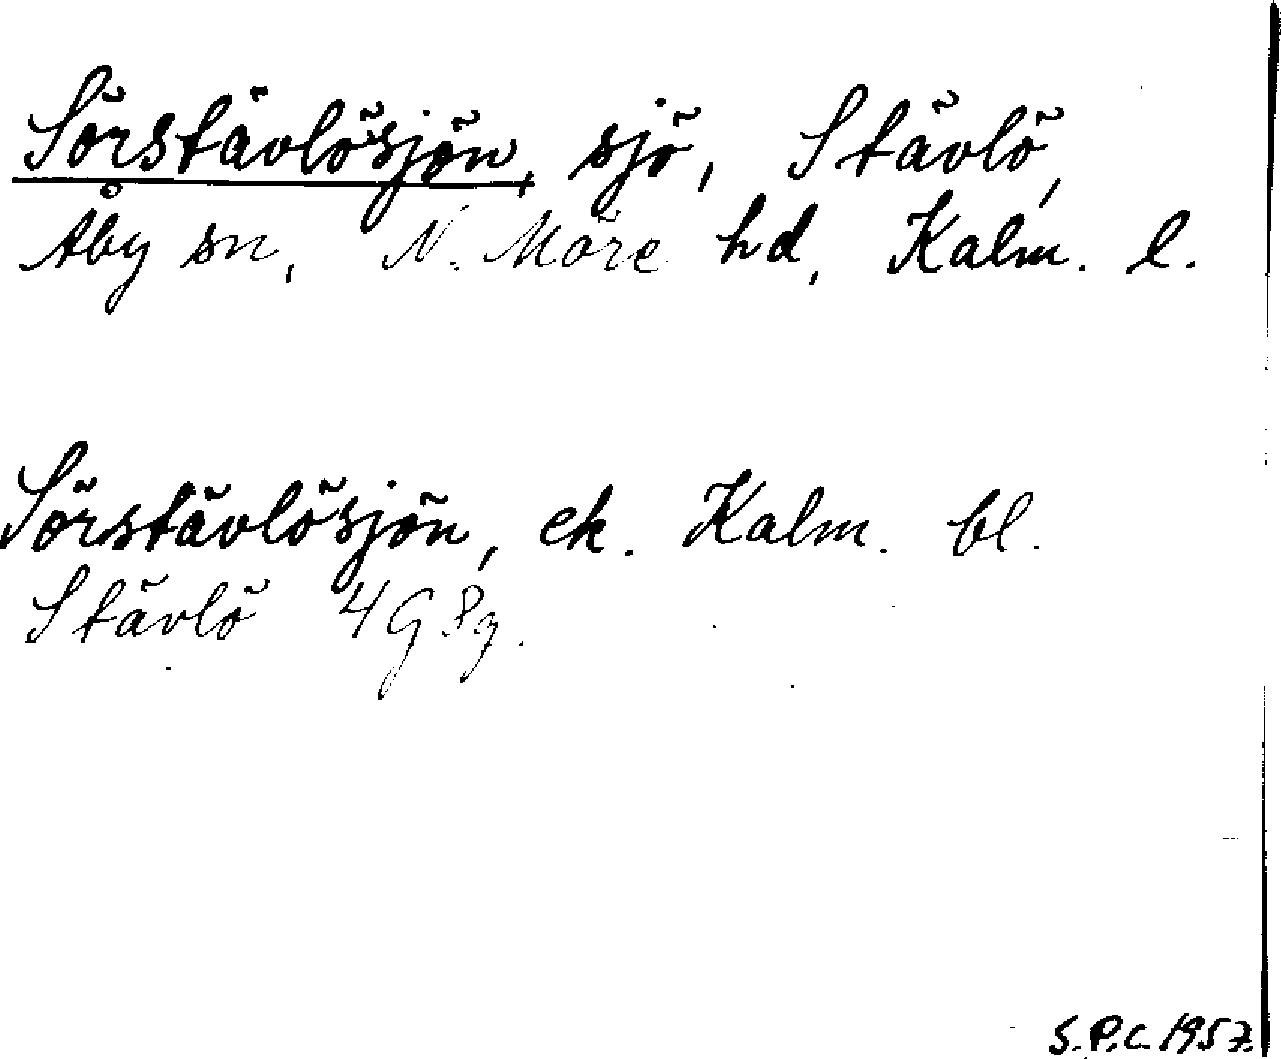 Sörstävlösjön, sjö, Stävlö,
Åby sn, N. Möre hd, Kalm. l.
Sörstävlösjön, ek. Kalm. bl.
Stävlö 4G
S.P.C. 1957.